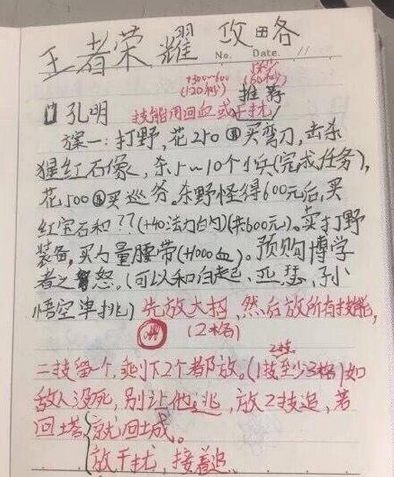 王者荣耀 攻略
No. Date.
+300~600
(120秒) (60秒)
推荐
孔明 技能用回血或干扰
方案一:打野,花250买弯刀,击杀
猩红石像,杀5~10个小兵(完成任务),
花500买巡守。杀野怪得600元后,买
红宝石和??(+40法力白勺)(共600元)。卖打野
装备,买力量腰带(+1000血)。预购博学
者之怒。(可以和白起、亚瑟、孙
悟空单挑)先放大招,然后放所有技能,
(2格)
二技留一个,剩下2个都放。(1技至少3格)如
敌人没死,别让他逃,放2技追,若
回塔 就回城。
放干扰,接着追